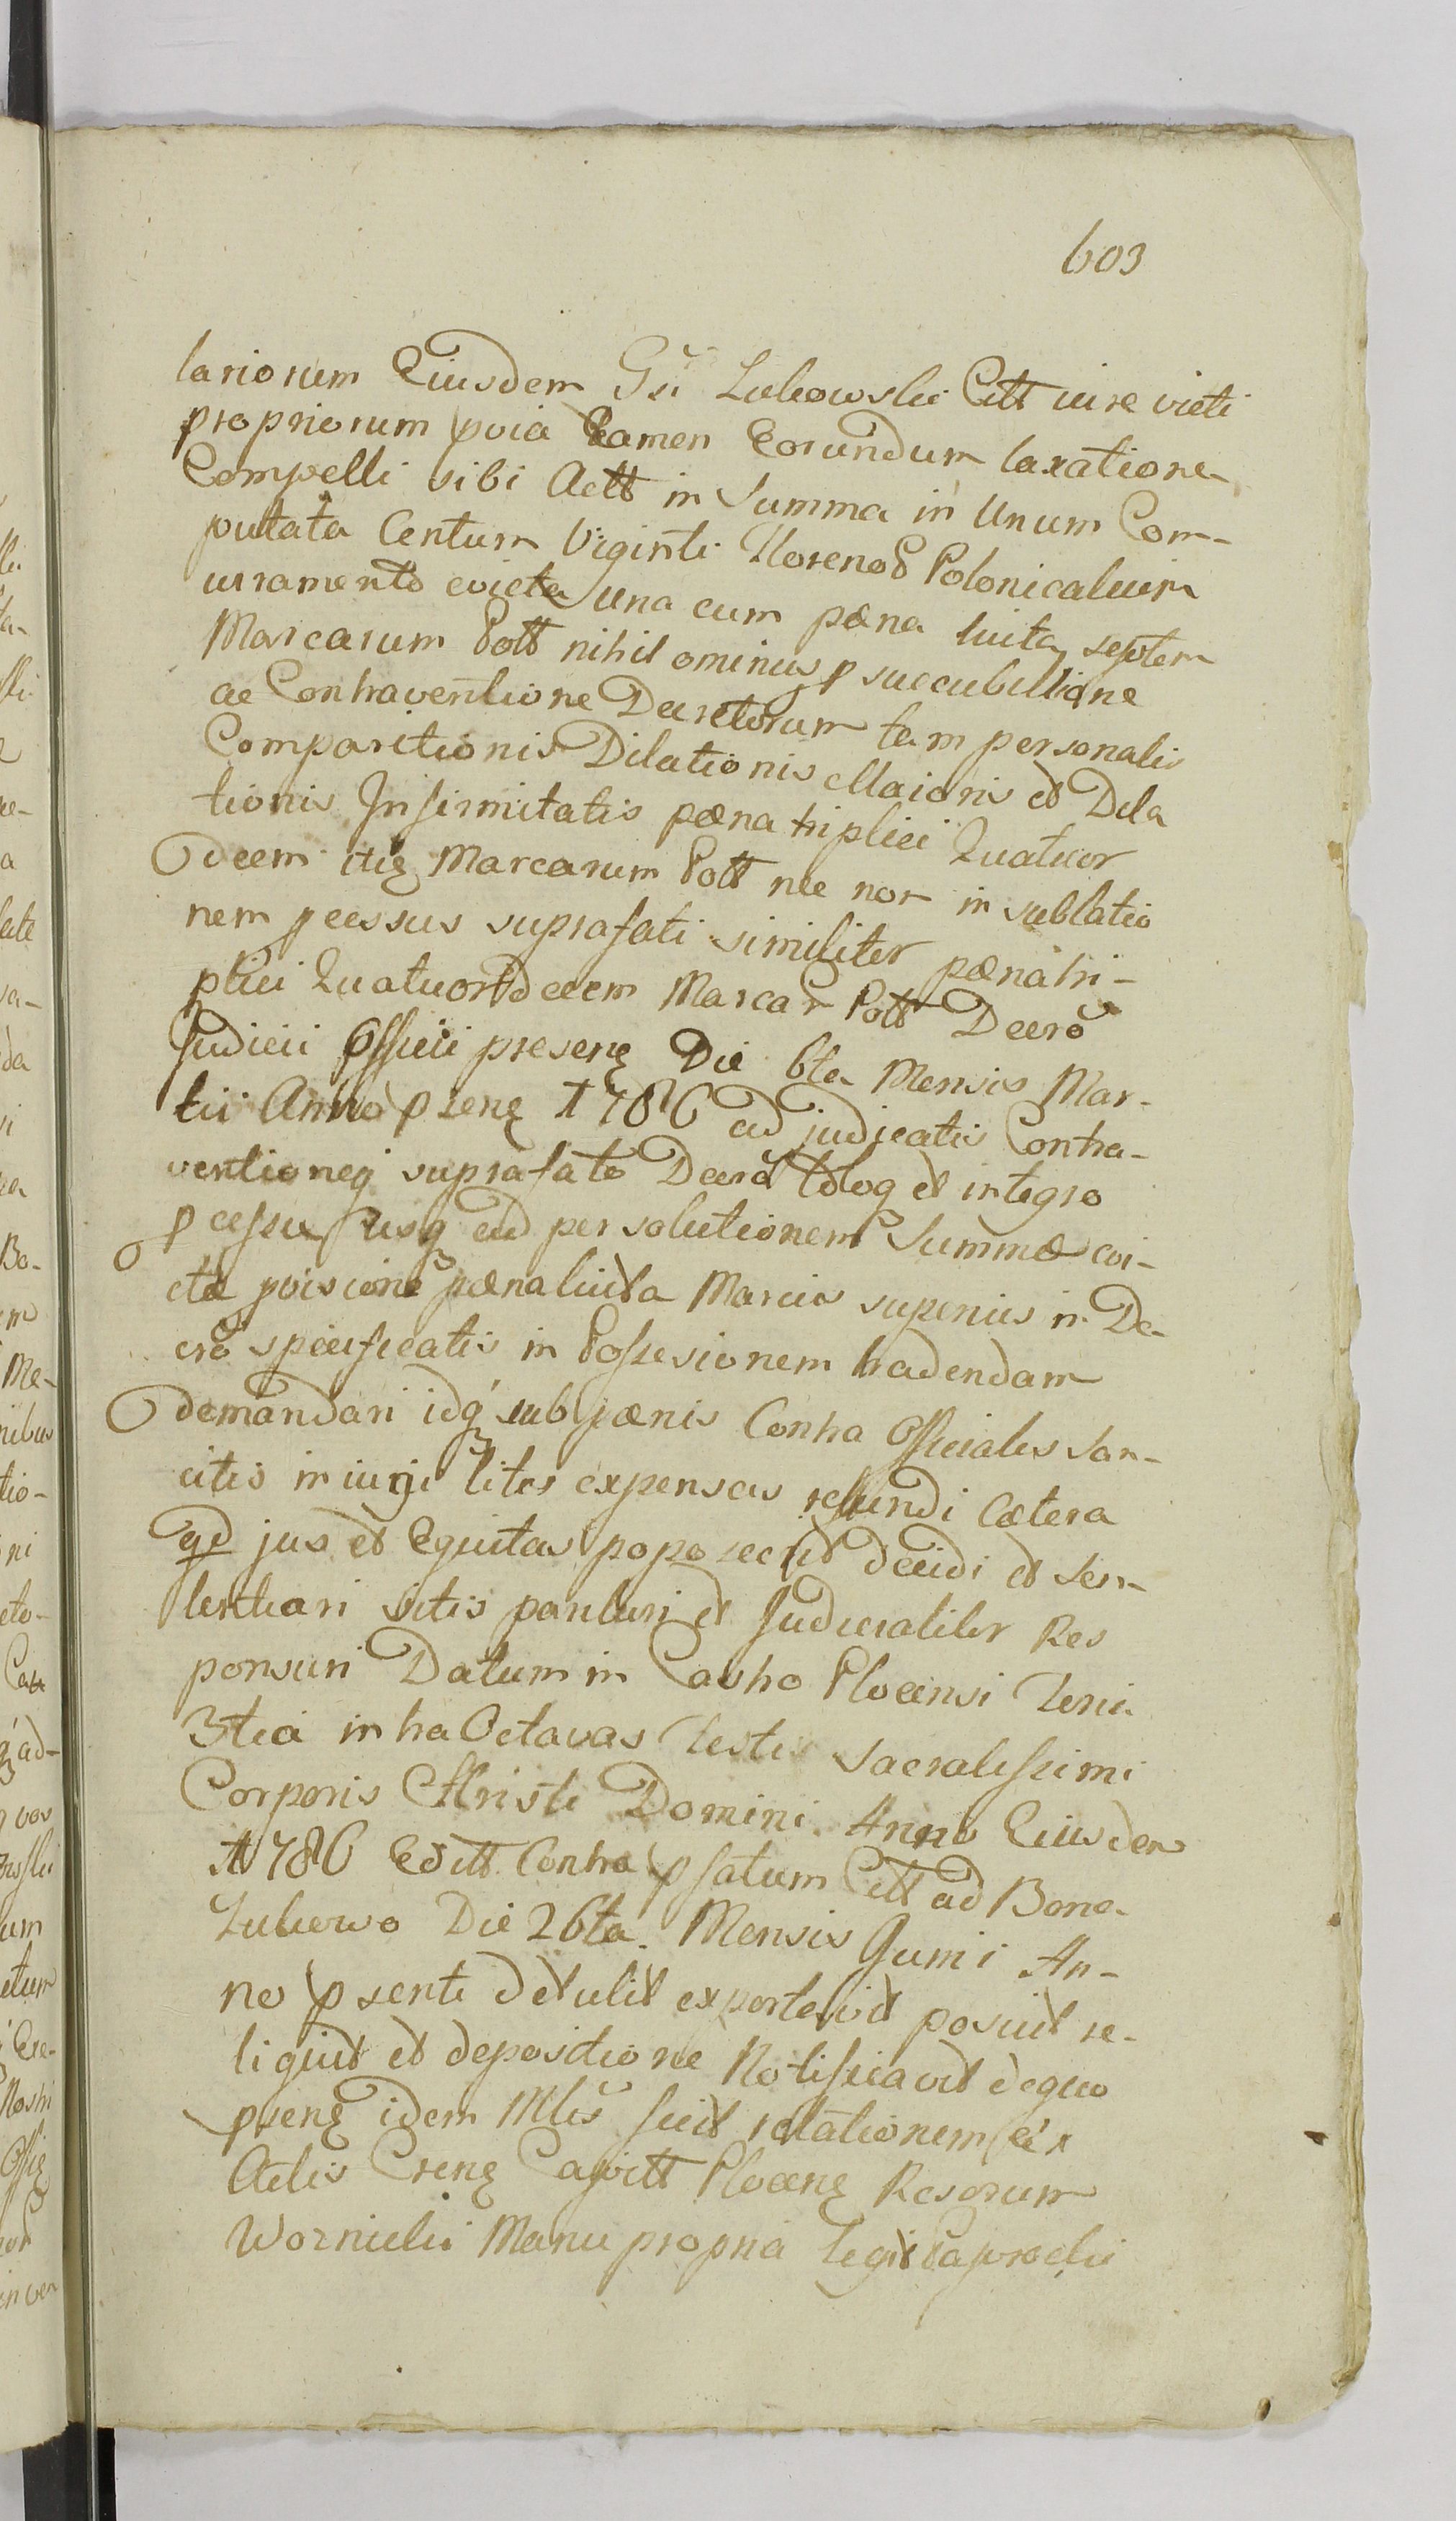 603
lariorum Eiusdem Gsi Lukowski Citt iure victi
propriorum pvia tamen Eorundum taxatione
Compelli sibi Actt in Summa in Unum Com-
putata Centum Viginti Florenos Polonicaluim
iuramento evicta una cum pæna luita septem
Marcarum Poll nihil ominus p succubilline
ac Contraventione Decretorum tam personalis
Comparitionis Dilationis Maioris et Dila
tionis Infirmitatis pæna triplici Quatuor
decem itiq Marcarum Poll nec non in sublatio
nem pcessus suprafati similiter pæna tri-
plici Quatuordecem Marcar Poll Decro
Judicii Officii preseng Die 6ta Mensis Mar-
tii Anno pseng 1786 adjudicatis Contra-
ventioneq suprafato Decro tdoq et integro
pcessu usq ad persolutionem Summæ evi-
ctæ pvisione pæna luita Marcis superius in De-
cro specificatis in Possesionem tradendam
demandari idq sub pænis Contra Officiales san-
citis iniurji lites expensas refundi Cætera
qd jus et Equitas poposecrit decidi et sen-
tentiari sitis parituri et Judicialiter Res
ponsuri Datum in Castro Plocensi Feria
3tia intra Octavas Festi Sacratissimi
Corporis Christi Domini Anno Eiusdem
1786 Editt Contra psatum Citt ad Bona
Lukowo Die 26ta. Mensis Junii An-
no psenti detulit exportavit posuit re-
liquit et depositione Notificavit dequo
pseng idem Mlis fecit relationem Ex
Actis Creng Capitt Ploceng Rosorum
Woznicki Manu propria Legit